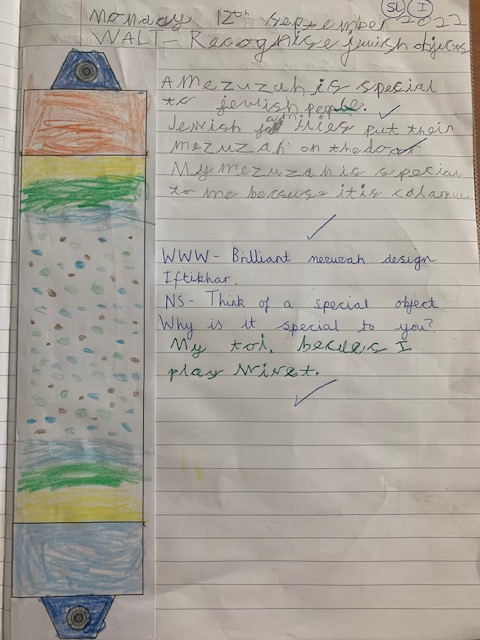 SL I
Monday 12th september 2022
WALT- Recognise jewish objects
A Mezuzah is special
to jewish people.
Jewish families put their
mezuzah on the door
My mezuzah is special
to me because it is
WWW- Brilliant mezuzah design
Iftikhar.
NS- Think of a special object.
Why is it special to you?
My toi, becues I
play